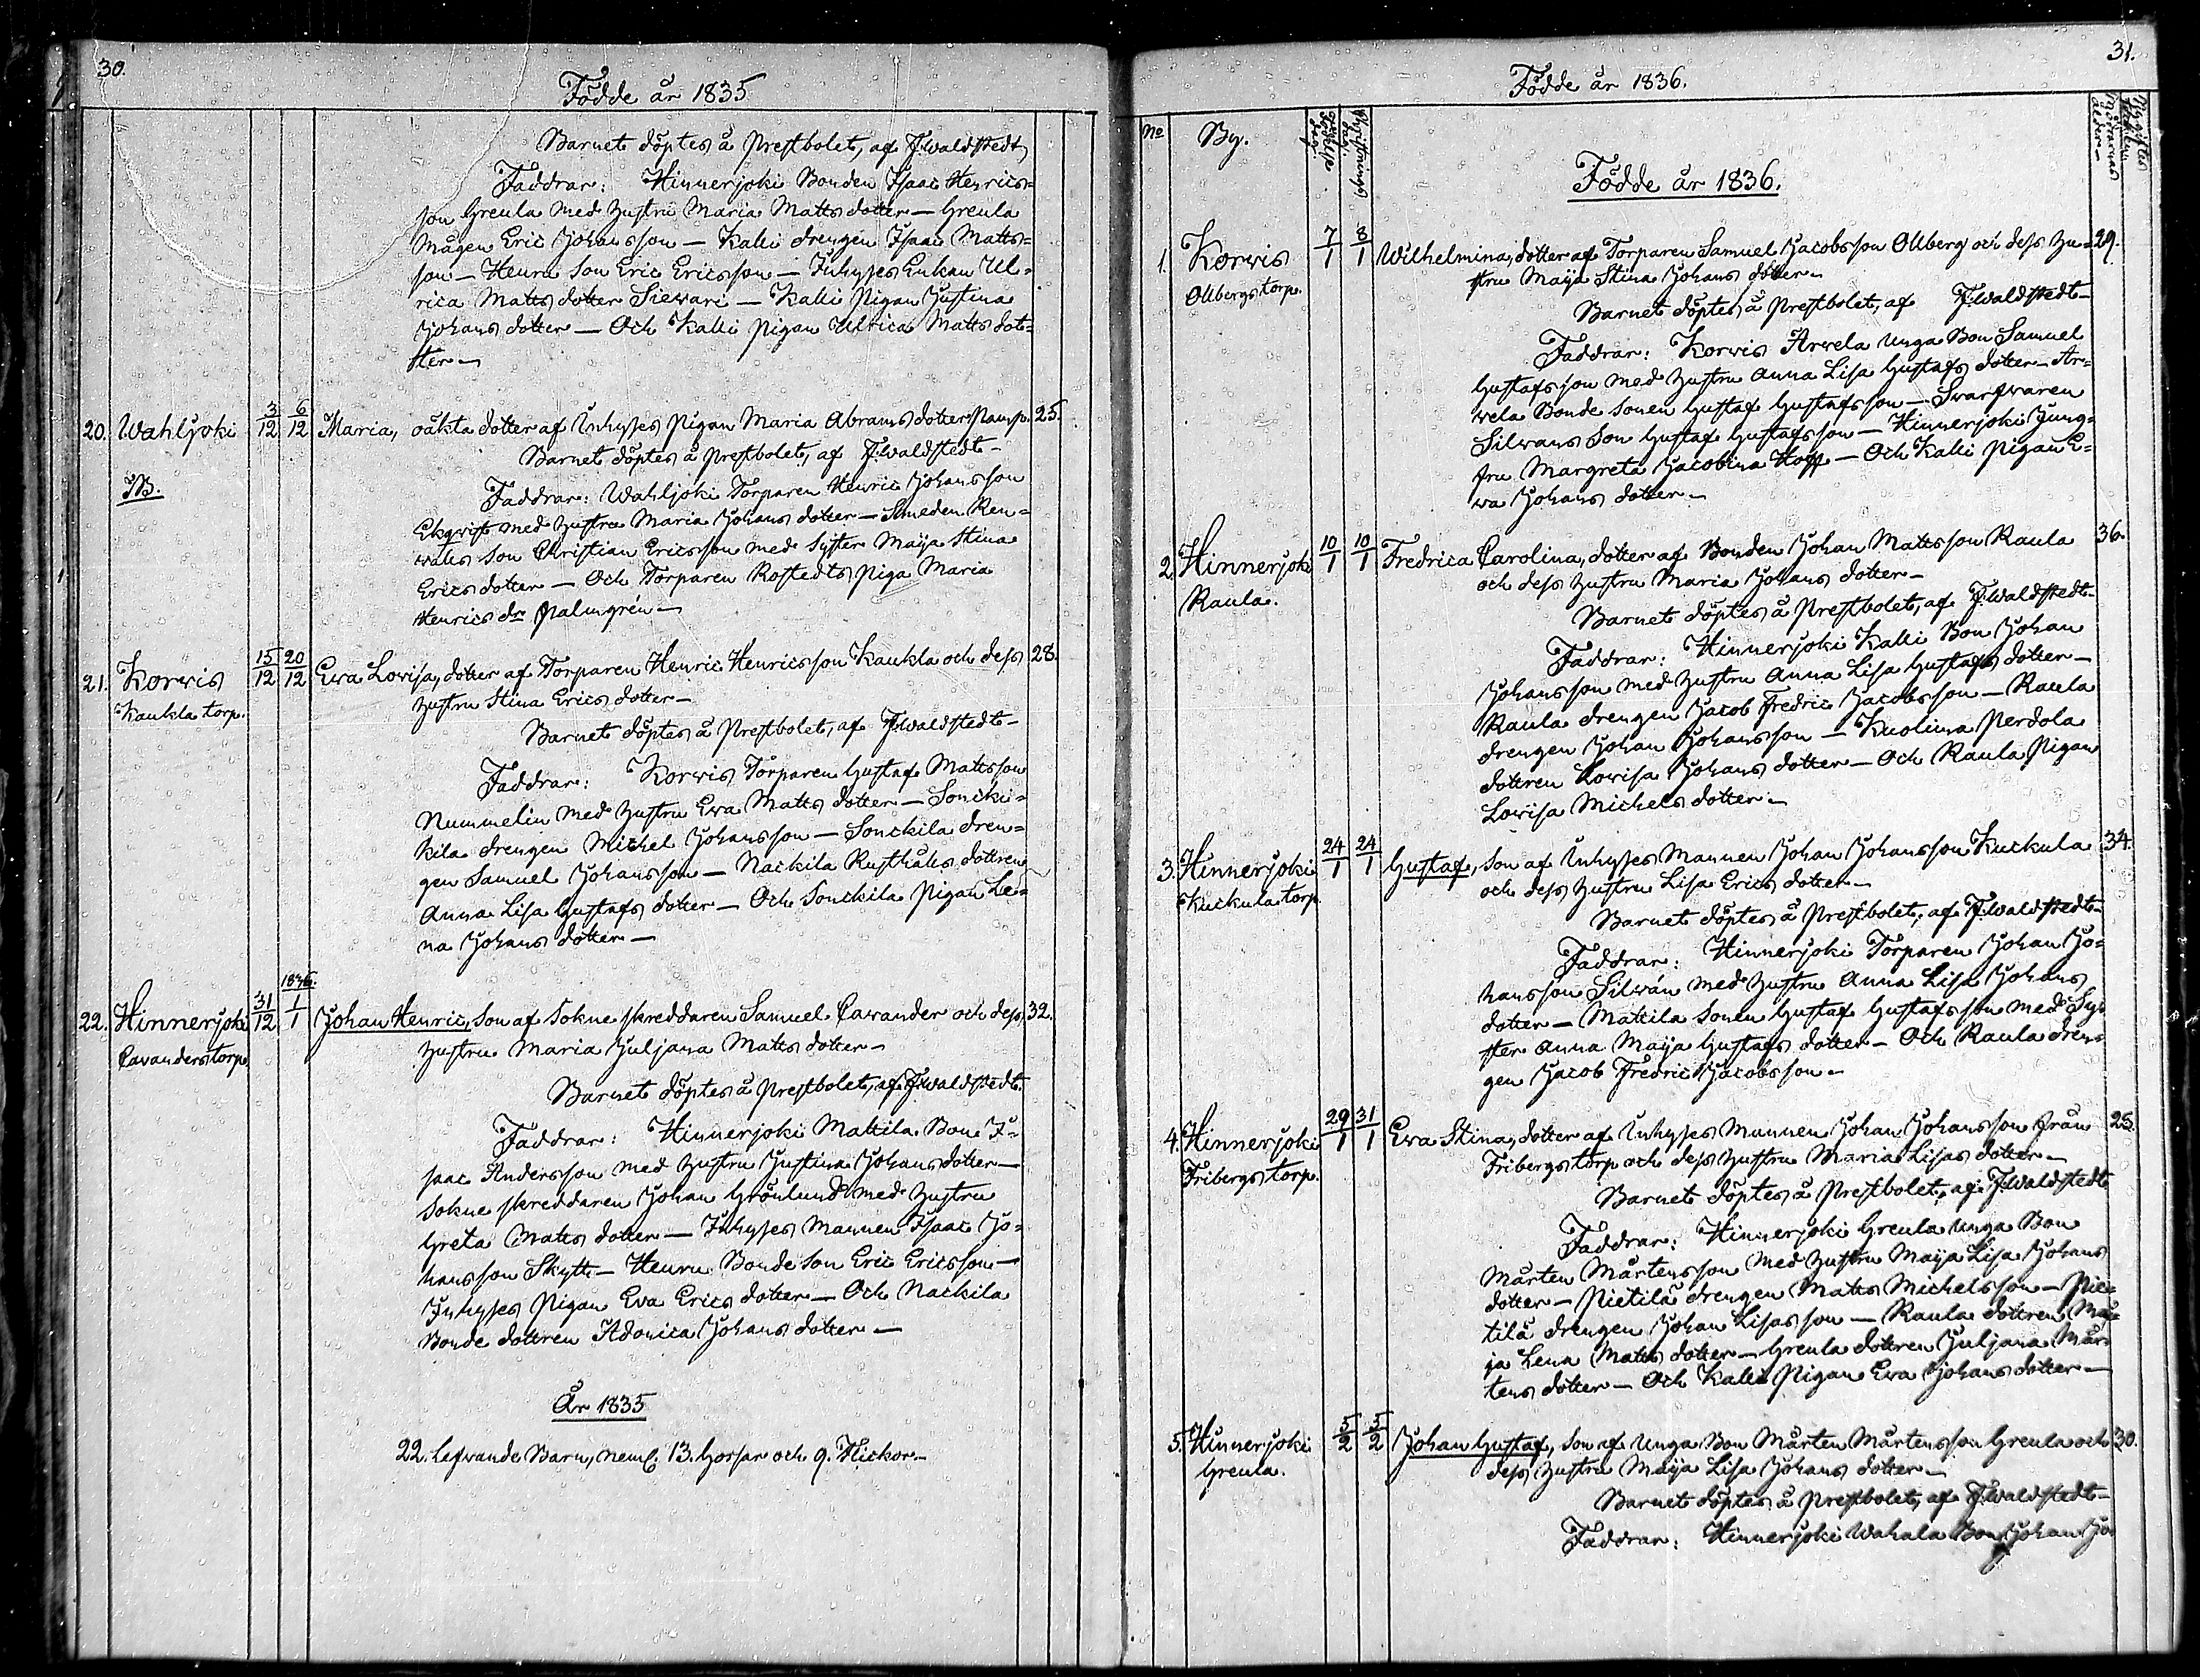 30.
Födde år 1835
Barnet döptes å Prestbolet, af F. Waldstedt
Faddrar: Hinnerjoki Bonden Isaac Henrics-
son Greula med hustru Maria Matts dotter — Greula
Mågen Eric Johansson — Kalli drengen Isaac Matts-
son — Heura son Eric Ericsson — Inhyses Enkan Ul-
rica Matts dotter Siewari — Kalli Pigan Justina
Johans dotter — Och Kalli Pigan Ulrica Matts dot-
ter —
20. Wahljoki 3/12 6/12 Maria, oäkta dotter af Inhyses Pigan Maria Abrams dotter Pamp. 25.
Barnet döptes å Prestbolet, af F. Waldstedt —
Faddrar: Wahljoki Torparen Henric Johansson
Ekqwist med hustru Maria Johans dotter — Smeden Ren-
walls son Christian Ericsson med Syster Maija Stina
Erics dotter — Och Torparen Rostedts Piga Maria
Henrics dr Palmgrén —
21. Korwis 15/12 20/12 Ewa Lovisa, dotter af Torparen Henric Henricsson Kaukla och dess 28.
Kaukla torp. hustru Stina Erics dotter —
Barnet döptes å Prestbolet, af F. Waldstedt —
Faddrar: Korwis Torparen Gustaf Mattsson
Nummelin med hustru Ewa Matts dotter — Soncki-
kila drengen Michel Johansson — Sonckila dren-
gen Samuel Johansson — Nackila Rusthålls dottren
Anna Lisa Gustafs dotter — Och Sonckila Pigan Le-
na Johans dotter —
1836.
22. Hinnerjoki 31/12 1/1 Johan Henric, Son af Sokne skreddaren Samuel Cavander och dess 32.
Cavanders torp. hustru Maria Juljana Matts dotter —
Barnet döptes å Prestbolet, af F. Waldstedt
Faddrar: Hinnerjoki Mattila Bon I-
saac Andersson med hustru Justina Johans dotter —
Sokne skreddaren Johan Grönlund med hustru
Greta Matts dotter — Inhyses Mannen Isaac Jo-
hansson Skytt — Heuru Bonde son Eric Ericsson —
Inhyses Pigan Eva Erics dotter — Och Nackila
Bonde dottren Adonica Johans dotter —
År 1835
22. Lefvande Barn, neml. 13. Gossar och 9. Flickor —
31.
Födde år 1836.
No By.
Födde år 1836.
1. Korwis 7/1 8/1 Wilhelmina, dotter af Torparen Samuel Jacobsson Ollberg och dess hu- 29.
Ollbergs torp. stru Maija Stina Johans dotter —
Barnet döptes å Prestbolet, af F. Waldstedt —
Faddrar: Korwis Arwela unga Bon Samuel
Gustafsson med hustru Anna Lisa Gustafs dotter — Ar-
wela Bonde Sonen Gustaf Gustafsson — Swarfwaren
Silwans Son Gustaf Gustafsson — Hinnerjoki Jung-
fru Margreta Jacobina Hoff — Och Kalli Pigan E-
wa Johans dotter —
2. Hinnerjoki 10/1 10/1 Fredrica Carolina, dotter af Bonden Johan Mattsson Raula 36.
Raula. och dess hustru Maria Johans dotter —
Barnet döptes å Prestbolet, af F. Waldstedt —
Faddrar: Hinnerjoki Kalli Bon Johan
Johansson med hustru Anna Lisa Gustafs dotter —
Raula drengen Jacob Fredric Jacobsson — Raula
drengen Johan Johansson — Kuolima Perdola
dottren Lovisa Johans dotter — Och Raula Pigan
Lovisa Michels dotter —
3. Hinnerjoki 24/1 24/1 Gustaf, Son af Inhyses Mannen Johan Johansson Kuckula 34.
Kuckula torp. och dess hustru Lisa Erics dotter —
Barnet döptes å Prestbolet, af F. Waldstedt —
Faddrar: Hinnerjoki Torparen Johan Jo-
hansson Silwán med hustru Anna Lisa Johans
dotter — Mattila Sonen Gustaf Gustafsson med Sys-
ter Anna Maija Gustafs dotter — Och Raula dren-
gen Jacob Fredric Jacobsson —
4. Hinnerjoki 29/1 31/1 Ewa Stina, dotter af Inhyses Mannen Johan Johansson från 25.
Fribergs torp. Fribergs torp och dess hustru Maria Lisas dotter —
Barnet döptes å Prestbolet, af F. Waldstedt
Faddrar: Hinnerjoki Greula unga Bon
Mårten Mårtensson med hustru Maija Lisa Johans
dotter — Pietilä drengen Matts Michelsson — Pie-
tilä drengen Johan Lisasson — Raula dottren Ma-
ja Lena Matts dotter — Greula dottren Juljana Mår-
tens dotter — Och Kalli Pigan Ewa Johans dotter —
5. Hinnerjoki 5/2 5/2 Johan Gustaf, Son af unga Bon Mårten Mårtensson Greula och 30.
Greula. dess hustru Maija Lisa Johans dotter —
Barnet döptes å Prestbolet, af F. Waldstedt —
Faddrar: Hinnerjoki Wahala Bon Johan Jo